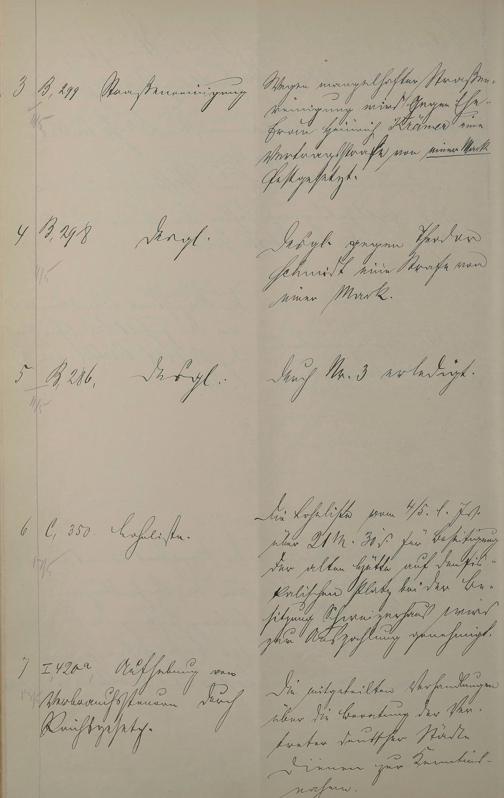 3 B, 299 Straßenreinigung
Wegen mangelhafter Straßen-
reinigung wird gegen Ehe-
frau Heinrich Krämer eine
Vertragsstrafe von einer Mark
festgesetzt.
4 B, 298 Desgl.
Desgl. gegen Theodor
Schmidt eine Strafe von
einer Mark.
5 B, 286, Desgl.
Durch Nr. 3 erledigt.
6 C, 350 Lohnliste.
Die Lohnliste vom 4/5. l. Js.
über 21 M. 30 für Beseitigung
der alten Hütte auf dem fis-
kalischen Platz bei der Be-
sitzung Schweizerhaus wird
zur Auszahlung genehmigt.
7 I 420a, Aufhebung von
Verbrauchssteuern durch
Reichsgesetz.
Die mitgeteilten Verhandlungen
über die Beratung der Ver-
treter deutscher Städte
dienen zur Kenntnis-
nahme.